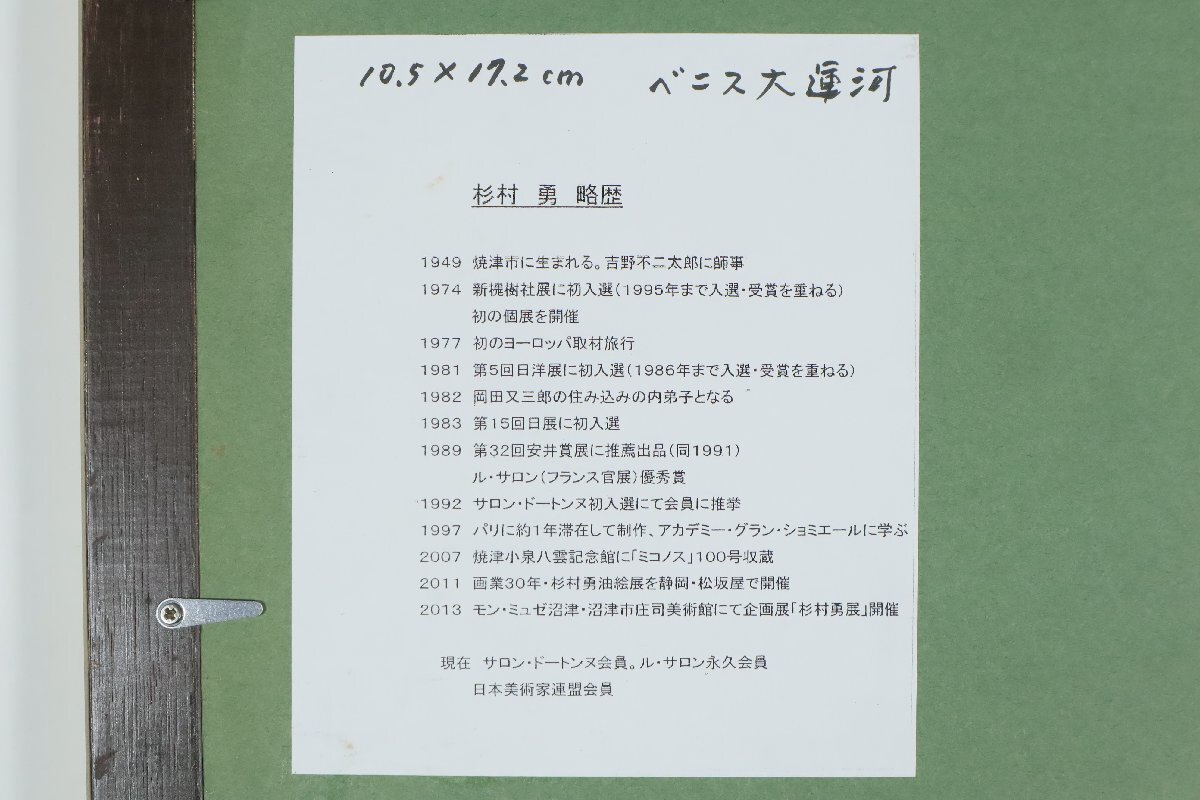 10.5×17.2cm ベニス大運河
杉村 勇 略歴
1949 焼津市に生まれる。吉野不二太郎に師事
1974 新槐樹社展に初入選(1995年まで入選・受賞を重ねる)
初の個展を開催
1977 初のヨーロッパ取材旅行
1981 第5回日洋展に初入選(1986年まで入選・受賞を重ねる)
1982 岡田又三郎の住み込みの内弟子となる
1983 第15回日展に初入選
1989 第32回安井賞展に推薦出品(同1991)
ル・サロン(フランス官展)優秀賞
1992 サロン・ドートンヌ初入選にて会員に推挙
1997 パリに約1年滞在して制作、アカデミー・グラン・ショミエールに学ぶ
2007 焼津小泉八雲記念館に「ミコノス」100号収蔵
2011 画業30年・杉村勇油絵展を静岡・松坂屋で開催
2013 モン・ミュゼ沼津・沼津市庄司美術館にて企画展「杉村勇展」開催
現在 サロン・ドートンヌ会員。ル・サロン永久会員
日本美術家連盟会員